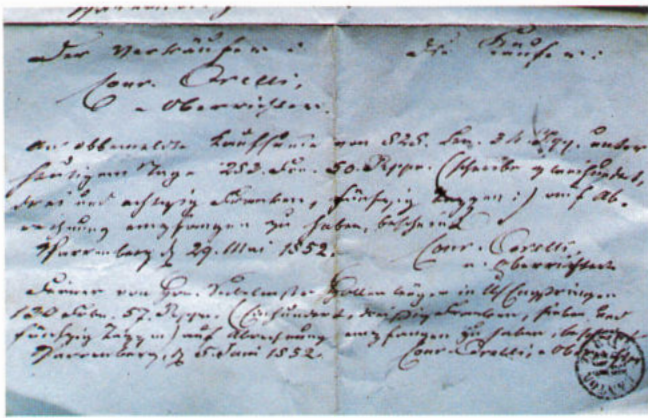 Der Verkäufer: Die Käufer:
Conr. Orelli,
a. Oberrichter.
An obbemeldte Kaufsumme von 525. Frn. 24 Rpp. unter
heutigem Tage 283. Frn. 50. Rppn. (schreibe zweihundert,
drei und achtzig Franken, fünfzig Rappen:) auf Ab-
rechnung empfangen zu haben, bescheint
Warrenberg, d. 29. Mai 1852. Conr. Orelli,
a. Oberrichter.
Ferner von Hrn. in
130 Frkn. 57. Rppn. (Einhundert, dreißig Franken, sieben und
fünfzig Rappen) auf Abrechnung empfangen zu haben, bescheint
Warrenberg, d. 5. Juni 1852. Conr. Orelli, a. Oberrichter